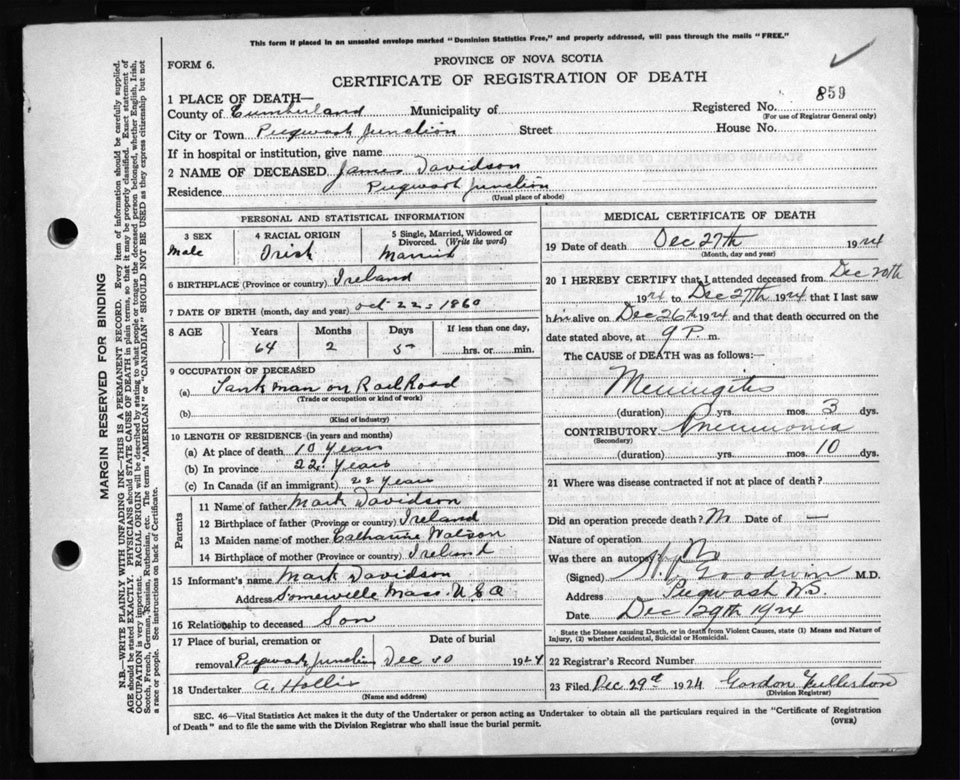 This form if placed in an unsealed envelope marked "Dominion Statistics Free," and properly addressed, will pass through the mails "FREE."
FORM 6.
PROVINCE OF NOVA SCOTIA
CERTIFICATE OF REGISTRATION OF DEATH
1 PLACE OF DEATH—
County of Cumberland Municipality of Registered No. 859
(For use of Registrar General only)
City or Town Pugwash Junction Street House No.
If in hospital or institution, give name
2 NAME OF DECEASED James Davidson
Residence Pugwash Junction
(Usual place of abode)
PERSONAL AND STATISTICAL INFORMATION
3 SEX 4 RACIAL ORIGIN 5 Single, Married, Widowed or Divorced. (Write the word)
Male Irish Married
6 BIRTHPLACE (Province or country) Ireland
7 DATE OF BIRTH (month, day and year) Oct 22 1860
8 AGE Years Months Days If less than one day,
64 2 5 hrs. or min.
9 OCCUPATION OF DECEASED
(a) Tank man on RailRoad
(Trade or occupation or kind of work)
(b)
(Kind of industry)
10 LENGTH OF RESIDENCE (in years and months)
(a) At place of death 10 Years
(b) In province 22 Years
(c) In Canada (if an immigrant) 22 Years
Parents
11 Name of father Mark Davidson
12 Birthplace of father (Province or country) Ireland
13 Maiden name of mother Catharine Watson
14 Birthplace of mother (Province or country) Ireland
15 Informant's name Mark Davidson
Address Somerville Mass. U.S.A
16 Relationship to deceased Son
17 Place of burial, cremation or Date of burial
removal Pugwash Junction Dec 30 1924
18 Undertaker A. Hollis
(Name and address)
MEDICAL CERTIFICATE OF DEATH
19 Date of death Dec 27th 1924
(Month, day and year)
20 I HEREBY CERTIFY that I attended deceased from Dec 20th
1924 to Dec 27th 1924 that I last saw
him alive on Dec 26th 1924 and that death occurred on the
date stated above, at 9 P. m.
The CAUSE of DEATH was as follows:—
Meningitis
(duration) yrs. mos. 3 dys.
CONTRIBUTORY Pneumonia
(Secondary)
(duration) yrs. mos. 10 dys.
21 Where was disease contracted if not at place of death?
Did an operation precede death? No Date of —
Nature of operation
Was there an autopsy? No
(Signed) Goodwin M.D.
Address Pugwash N.S.
Date Dec 29th 1924
State the Disease causing Death, or in death from Violent Causes, state (1) Means and Nature of
Injury, (2) whether Accidental, Suicidal or Homicidal.
22 Registrar's Record Number
23 Filed Dec 29th 1924 Gordon Fullerton
(Division Registrar)
SEC. 46—Vital Statistics Act makes it the duty of the Undertaker or person acting as Undertaker to obtain all the particulars required in the "Certificate of Registration
of Death" and to file the same with the Division Registrar who shall issue the burial permit.
(OVER)
MARGIN RESERVED FOR BINDING
N.B.—WRITE PLAINLY WITH UNFADING INK—THIS IS A PERMANENT RECORD. Every item of information should be carefully supplied.
AGE should be stated EXACTLY. PHYSICIANS should STATE CAUSE OF DEATH in plain terms, so that it may be properly classified. Exact statement of
OCCUPATION is very important. RACIAL ORIGIN will be described by stating to what people or tongue the deceased person belonged, whether English, Irish,
Scotch, French, German, Russian, Ruthenian, etc. The terms "AMERICAN" or "CANADIAN" SHOULD NOT BE USED as they express citizenship but not
a race or people. See instructions on back of Certificate.